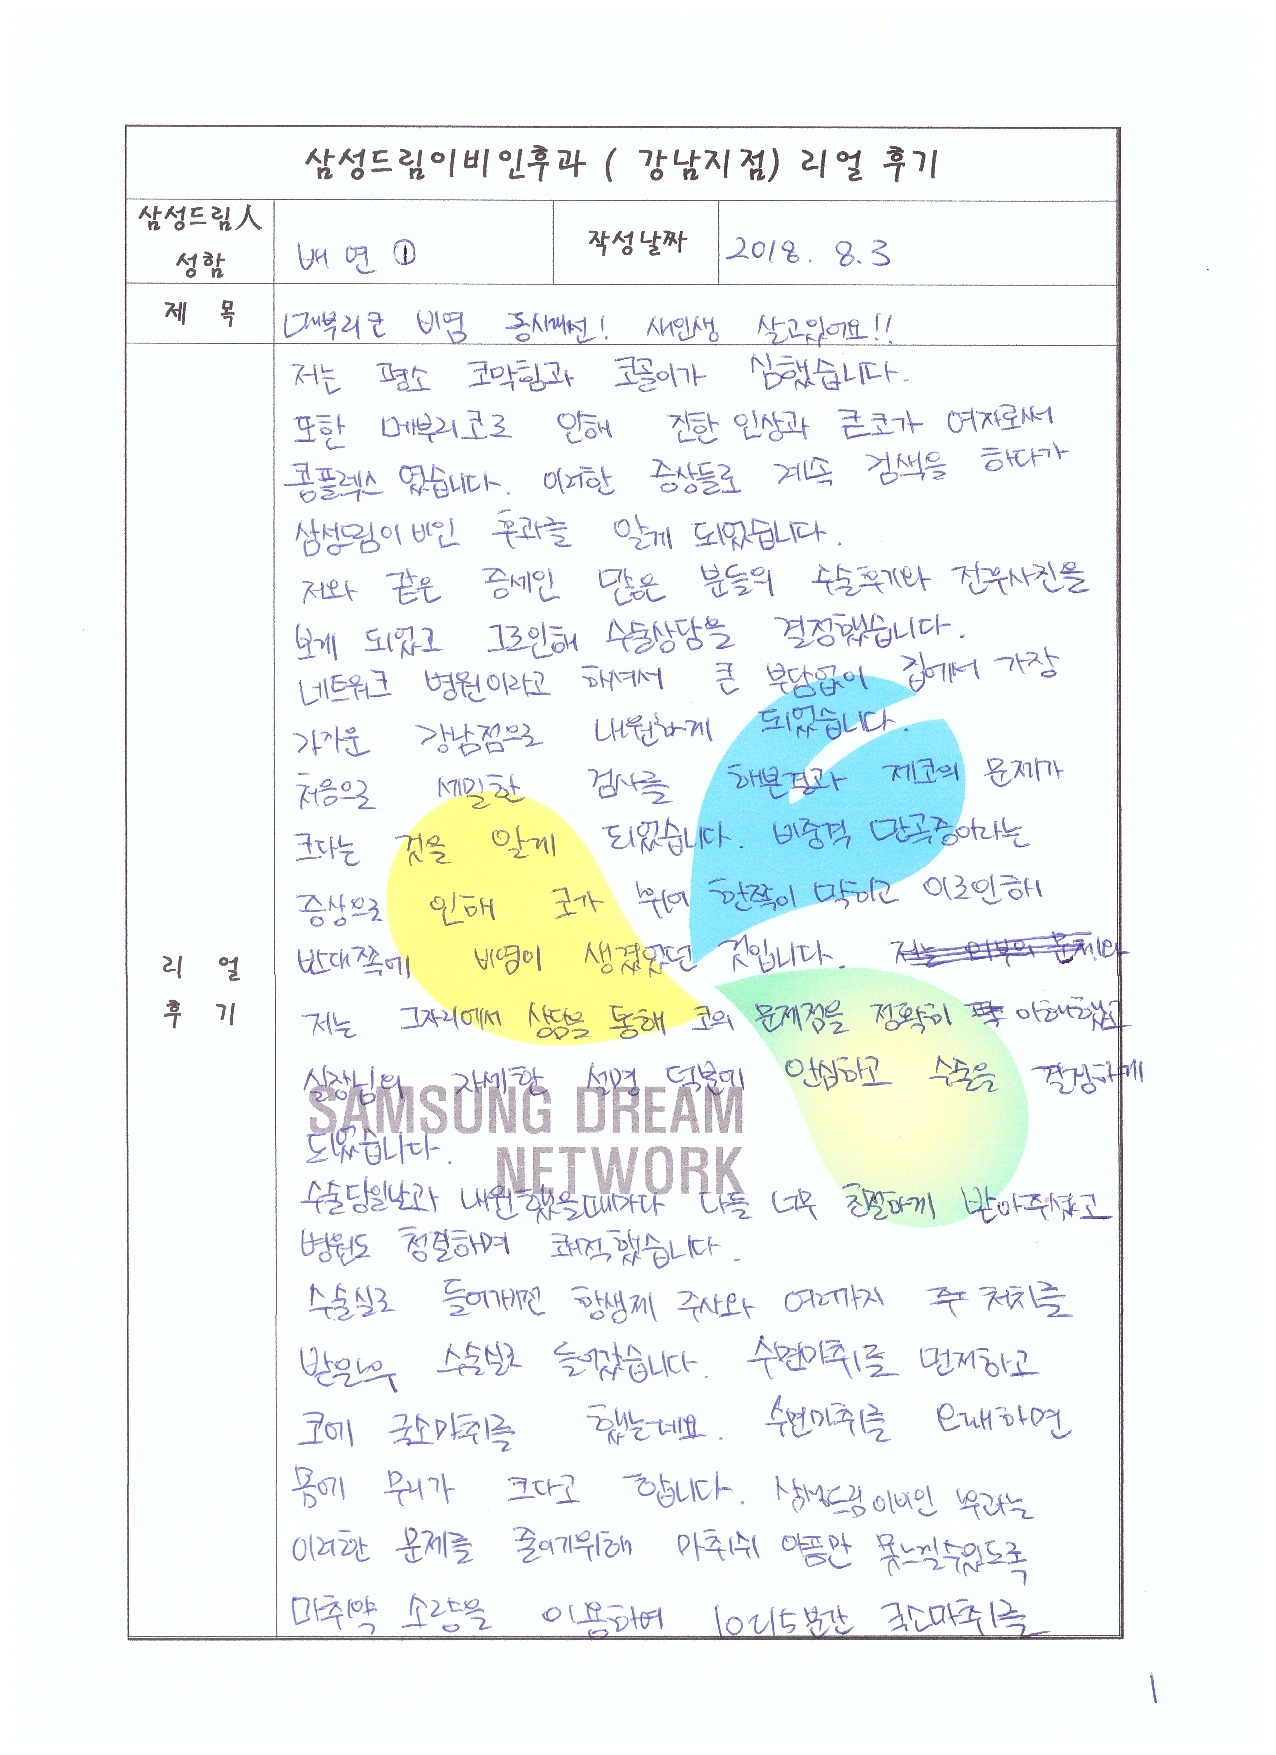 삼성드림이비인후과 ( 강남지점) 리얼 후기
삼성드림人 성함
배 연 ①
작성날짜
2018. 8. 3
제 목
매부리코 비염 동시개선! 새인생 살고있어요!!
리 얼 후 기
저는 평소 코막힘과 코골이가 심했습니다.
또한 메부리코로 인해 진한 인상과 큰코가 여자로써
콤플렉스 였습니다. 이러한 증상들로 계속 검색을 하다가
삼성드림이비인 후과를 알게 되었습니다.
저와 같은 증세인 많은 분들의 수술후기와 전후사진을
보게 되었고 그로인해 수술상담을 결정했습니다.
네트워크 병원이라고 하셔서 큰 부담없이 집에서 가장
가까운 강남점으로 내원하게 되었습니다.
처음으로 세밀한 검사를 해본결과 제코의 문제가
크다는 것을 알게 되었습니다. 비중격 만곡증이라는
증상으로 인해 코가 휘어 한쪽이 막히고 이로인해
반대쪽에 비염이 생겼었던 것입니다. 저는 외부의 문제와
저는 그자리에서 상담을 통해 코의 문제점을 정확히 이해했고
실장님의 자세한 설명 덕분에 안심하고 수술을 결정하게
되었습니다.
수술당일날과 내원했을때마다 다들 너무 친절하게 받아주셨고
병원도 청결하며 쾌적했습니다.
수술실로 들어가기전 항생제 주사와 여러가지 처치를
받은후 수술실로 들어갔습니다. 수면마취를 먼저하고
코에 국소마취를 했는데요. 수면마취를 오래하면
몸에 무리가 크다고 합니다. 삼성드림이비인 후과는
이러한 문제를 줄이기위해 마취쉬 아픔만 못느낄수있도록
마취약 소량을 이용하여 10러5분간 국소마취를
SAMSUNG DREAM
NETWORK
1